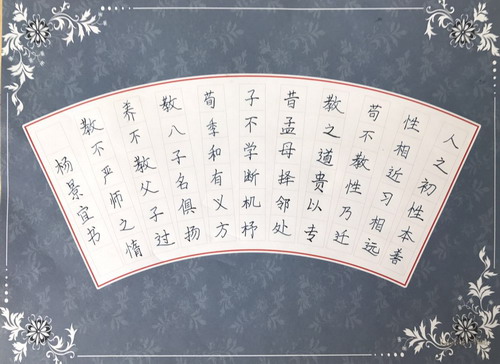 人之初性本善
性相近习相远
苟不教性乃迁
教之道贵以专
昔孟母择邻处
子不学断机杼
荀季和有义方
教八子名俱扬
养不教父子过
教不严师之惰
杨景宜书